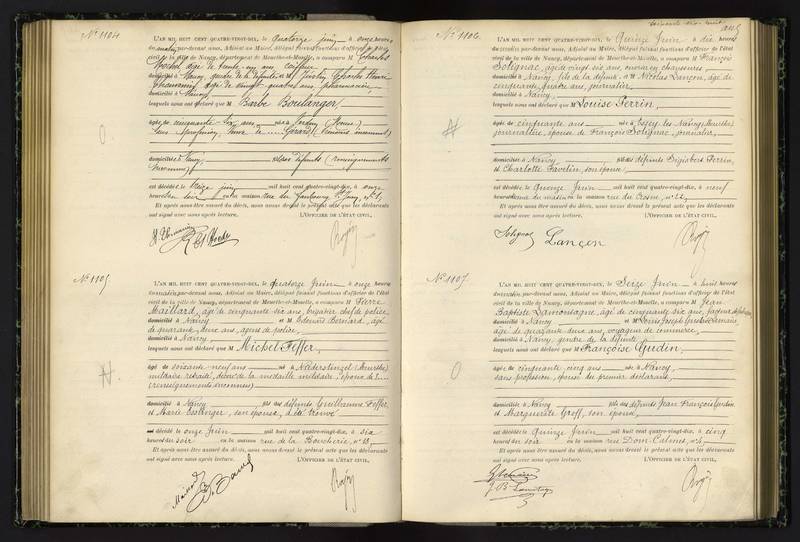 N° 1104
L'AN MIL HUIT CENT QUATRE-VINGT-DIX, le quatorze juin à onze heures
du matin, par-devant nous, Adjoint au Maire, délégué faisant fonctions d'officier de l'état
civil de la ville de Nancy, département de Meurthe-et-Moselle, a comparu M Charles
Hochel âgé de trente un ans, coiffeur
domicilié à Nancy, gendre de la défunte et M Justin Charles Henri
âgé de vingt quatre ans, pharmacien,
domicilié à Nancy
lesquels nous ont déclaré que M Barbe Boulanger,
âgée de cinquante six ans née à Verdun (Meuse)
sans profession, veuve de Gérard (prénoms inconnus)
domiciliée à Nancy, défunts (renseignements
inconnus)
est décédée le treize juin mil huit cent quatre-vingt-dix, à onze
heures du soir en la maison rue du Faubourg St Jean, n°
Et après nous être assuré du décès, nous avons dressé le présent acte que les déclarants
ont signé avec nous après lecture. L'OFFICIER DE L'ÉTAT CIVIL,
N° 1105
L'AN MIL HUIT CENT QUATRE-VINGT-DIX, le quatorze Juin à onze heures
du matin, par-devant nous, Adjoint au Maire, délégué faisant fonctions d'officier de l'état
civil de la ville de Nancy, département de Meurthe-et-Moselle, a comparu M Pierre
Maillard, âgé de cinquante six ans, brigadier chef de police,
domicilié à Nancy et M Edouard Bernard, âgé
de quarante deux ans, agent de police,
domicilié à Nancy
lesquels nous ont déclaré que M Michel Feffer,
âgé de soixante neuf ans né à Niderstinzel (Meurthe)
militaire retraité, décoré de la médaille militaire, époux de
(renseignements inconnus)
domicilié à Nancy fils des défunts Guillaume Feffer
et Marie Esslinger, son épouse, a été trouvé
décédé le onze Juin mil huit cent quatre-vingt-dix, à six
heures du soir en la maison rue de la Boucherie, n° 13,
Et après nous être assuré du décès, nous avons dressé le présent acte que les déclarants
ont signé avec nous après lecture. L'OFFICIER DE L'ÉTAT CIVIL,
N° 1106
L'AN MIL HUIT CENT QUATRE-VINGT-DIX, le Quinze Juin à dix heures
du matin, par-devant nous, Adjoint au Maire, délégué faisant fonctions d'officier de l'état
civil de la ville de Nancy, département de Meurthe-et-Moselle, a comparu M François
Solignac, âgé de vingt six ans, ouvrier en chaussures,
domicilié à Nancy, fils de la défunte, et M Nicolas Lançon, âgé de
cinquante quatre ans, journalier,
domicilié à Nancy,
lesquels nous ont déclaré que M Louise Perrin,
âgée de cinquante ans née à Essey les Nancy (Meurthe)
journalière, épouse de François Solignac, journalier,
domiciliée à Nancy fille des défunts Sigisbert Perrin,
et Charlotte Favelin, son épouse,
est décédée le Quinze Juin mil huit cent quatre-vingt-dix, à neuf
heures du matin en la maison rue du Crosne, n° 22,
Et après nous être assuré du décès, nous avons dressé le présent acte que les déclarants
ont signé avec nous après lecture. L'OFFICIER DE L'ÉTAT CIVIL,
Solignac Lançon
N° 1107
L'AN MIL HUIT CENT QUATRE-VINGT-DIX, le Seize Juin à huit heures
du matin, par-devant nous, Adjoint au Maire, délégué faisant fonctions d'officier de l'état
civil de la ville de Nancy, département de Meurthe-et-Moselle, a comparu M Jean
Baptiste Lamontagne, âgé de cinquante six ans,
domicilié à Nancy et M Louis Joseph
âgé de quarante deux ans, voyageur de commerce,
domicilié à Nancy, gendre de la défunte
lesquels nous ont déclaré que M Françoise Gudin,
âgée de cinquante cinq ans née à Nancy,
sans profession, épouse du premier déclarant,
domiciliée à Nancy fille des défunts Jean François Gudin
et Marguerite Groff, son épouse,
est décédée le Quinze Juin mil huit cent quatre-vingt-dix, à cinq
heures du soir en la maison rue Dom Calmet, n° 4,
Et après nous être assuré du décès, nous avons dressé le présent acte que les déclarants
ont signé avec nous après lecture. L'OFFICIER DE L'ÉTAT CIVIL,